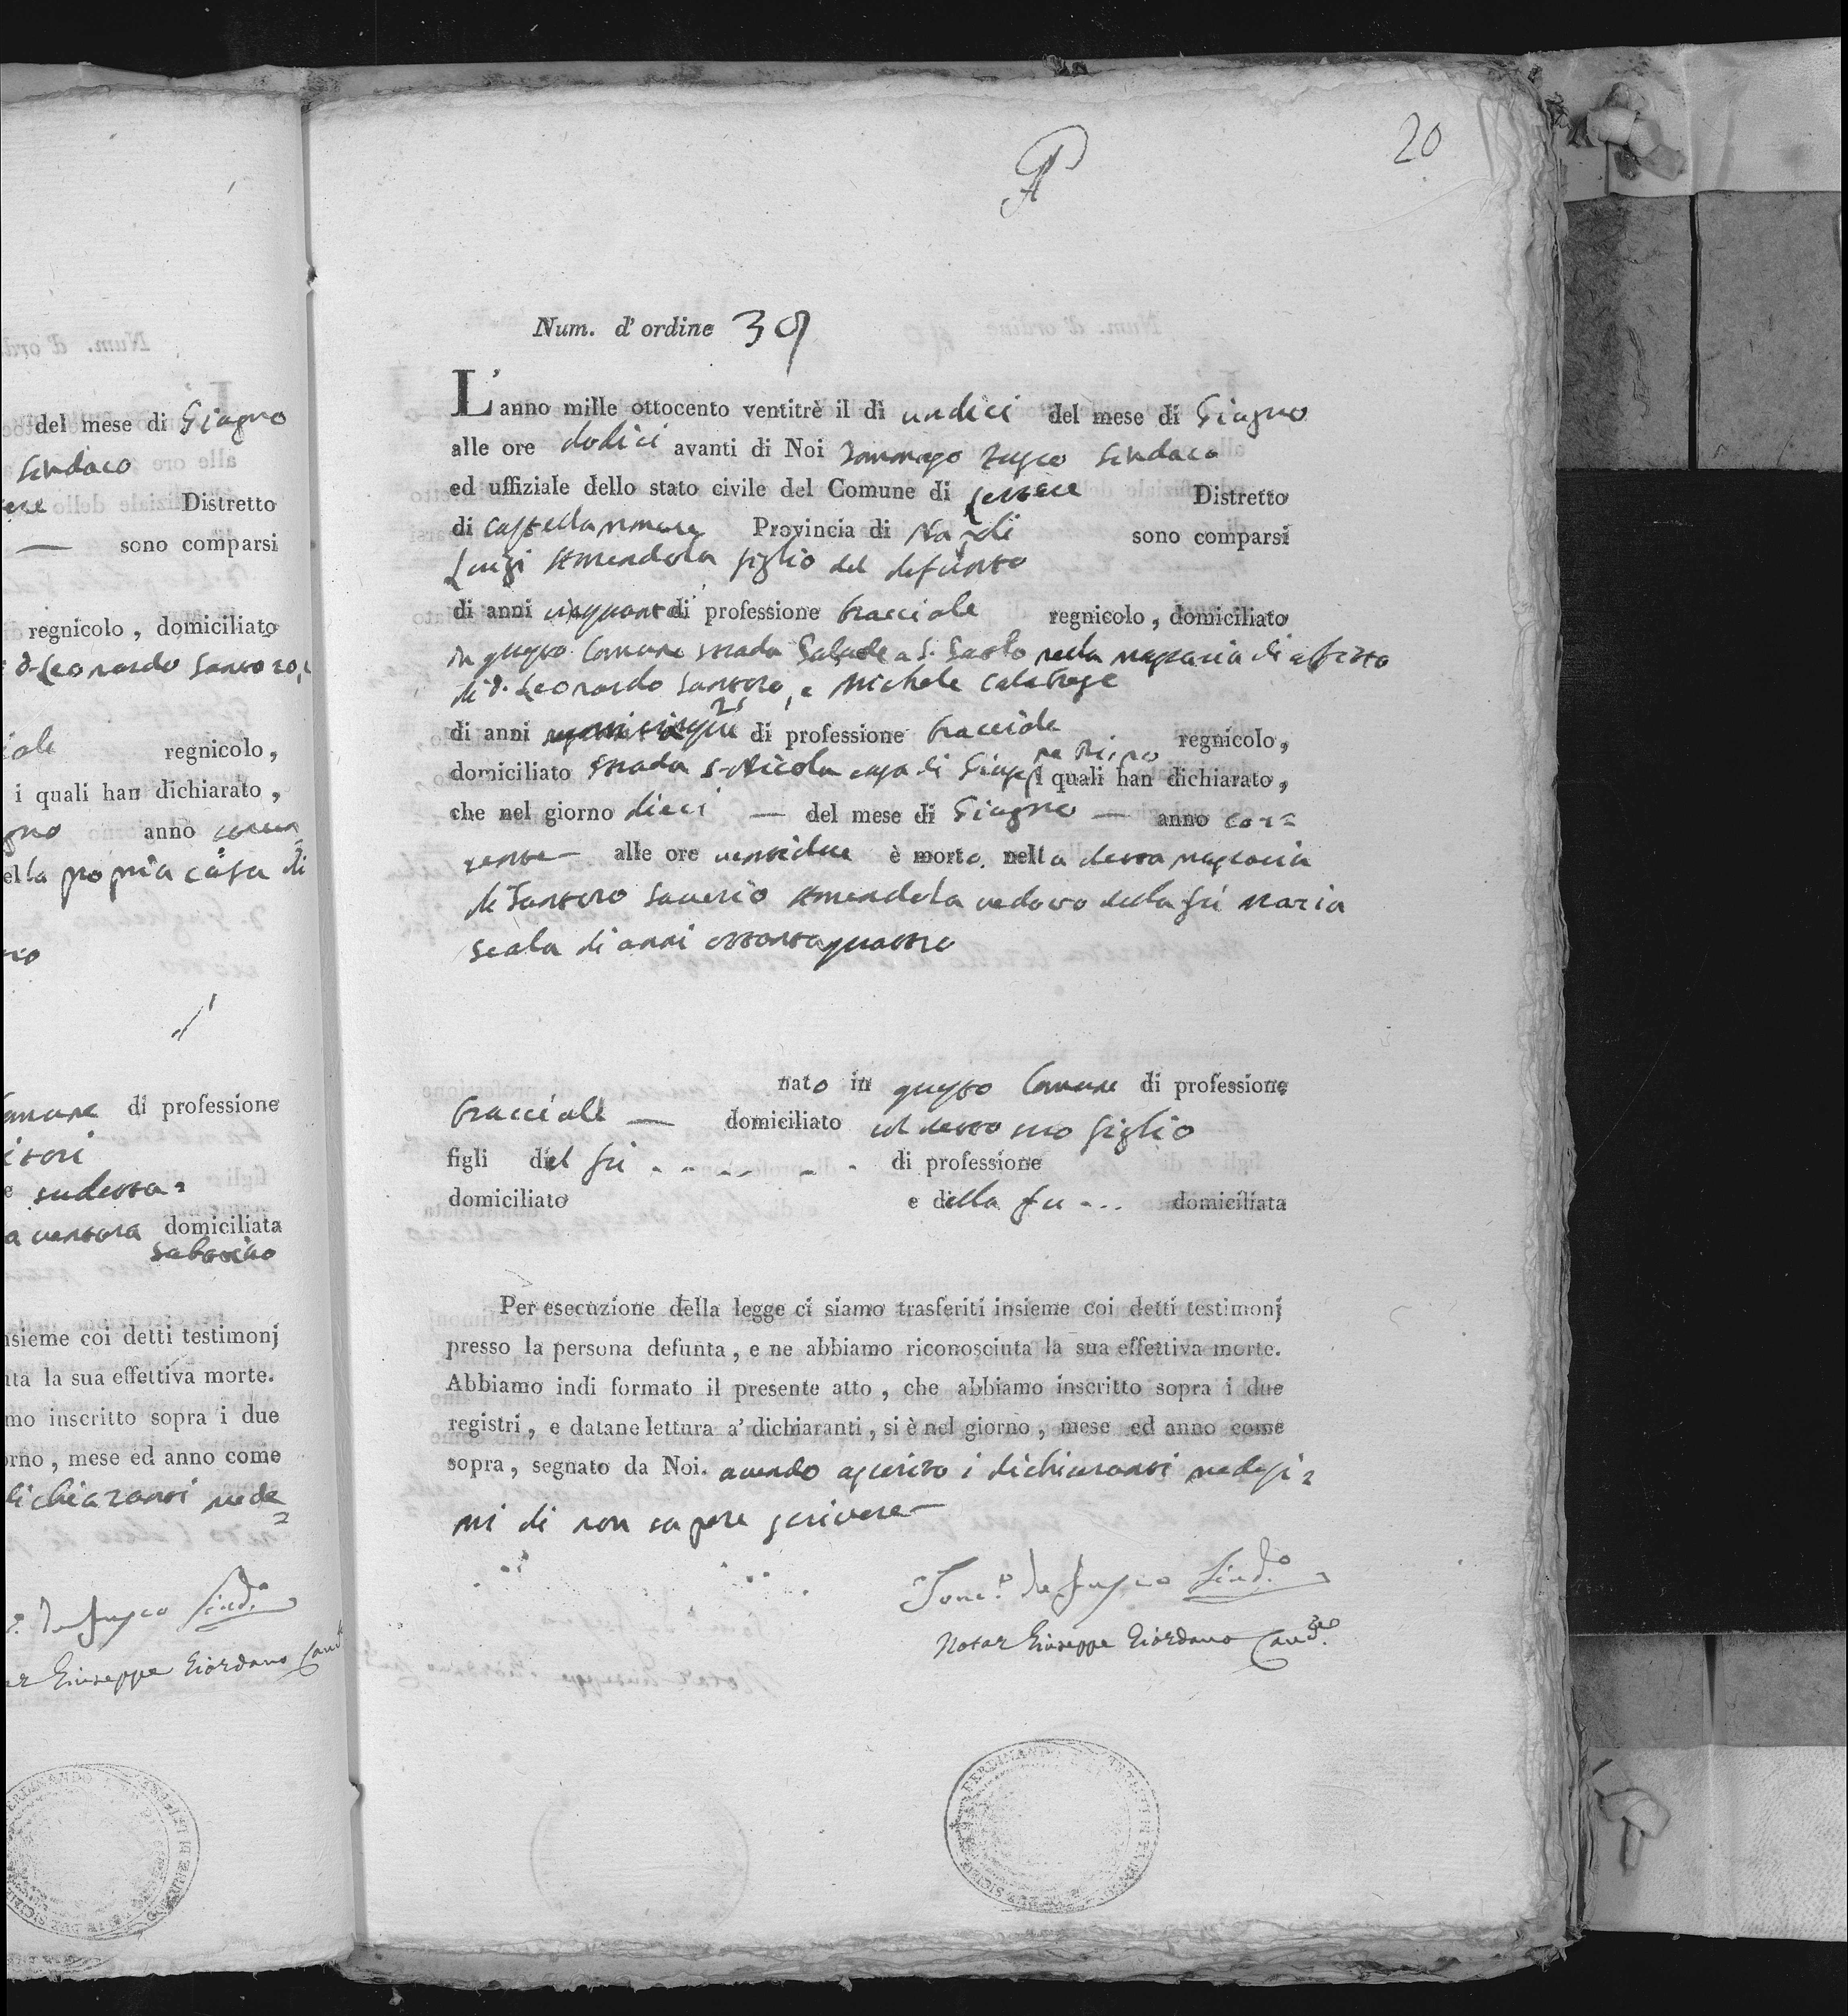 20
Num. d' ordine 39
L'anno mille ottocento ventitrè il di undici del mese di Giugno
alle ore dodici avanti di Noi Tommaso Fusco Sindaco
ed uffiziale dello stato civile del Comune di Lettere Distretto
di Castellammare Provincia di Napoli sono comparsi
Luigi Amendola figlio del defunto
di anni cinquanta di professione bracciale regnicolo, domiciliato
in questo Comune strada a S. Paolo nella massaria di affitto
di D. Leonardo Santoro, e Michele Calabrese
di anni 25 di professione bracciale regnicolo,
domiciliato strada S. Nicola casa di i quali han dichiarato,
che nel giorno dieci — del mese di Giugno — anno cor=
rente — alle ore ventidue è morto nella detta massaria
di Santoro Saverio Amendola vedovo della fù Maria
Scala di anni ottantaquattro
nato in questo Comune di professione
bracciale — domiciliato col detto suo figlio
figli del fù di professione
domiciliato e della fu ... domiciliata
Per esecuzione della legge ci siamo trasferiti insieme coi detti testimonj
presso la persona defunta, e ne abbiamo riconosciuta la sua effettiva morte.
Abbiamo indi formato il presente atto, che abbiamo inscritto sopra i due
registri, e datane lettura a' dichiaranti, si è nel giorno, mese ed anno come
sopra, segnato da Noi. avendo asserito i dichiaranti medesi=
mi di non sapere scrivere —
de Fusco Sind.o
Notar Giuseppe Giordano Canc.re
del mese di Giugno
Sindaco
Distretto
— sono comparsi
regnicolo, domiciliato
D. Leonardo Santoro,
regnicolo,
i quali han dichiarato,
anno
propria casa di
di professione
domiciliata
insieme coi detti testimonj
la sua effettiva morte.
inscritto sopra i due
mese ed anno come
dichiaranti mede=
de Fusco Sind.o
Giuseppe Giordano